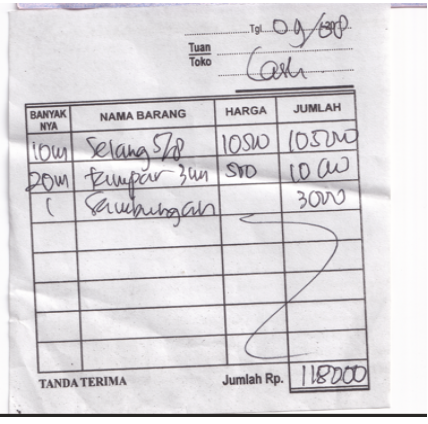 Tgl. 09/
Tuan
Toko
Cash
BANYAK NYA NAMA BARANG HARGA JUMLAH
10m Selang 5/8 10500 105000
20m 3m 500 10 000
1 Sambungan 3000
TANDA TERIMA Jumlah Rp. 118000